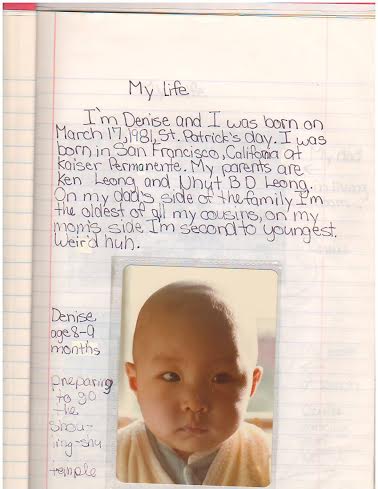 My Life
I'm Denise and I was born on
March 17, 1981, St. Patrick's day. I was
born in San Francisco, California at
Kaiser Permanente. My parents are
Ken Leong and Nhut B D Leong.
On my dad's side of the family I'm
the oldest of all my cousins, on my
mom's side I'm second to youngest.
Weird huh.
Denise
age 8-9
months
preparing
to go
the
Shou-
ing-shu
temple